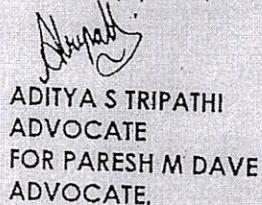 ADITYA S TRIPATHI
ADVOCATE
FOR PARESH M DAVE
ADVOCATE.